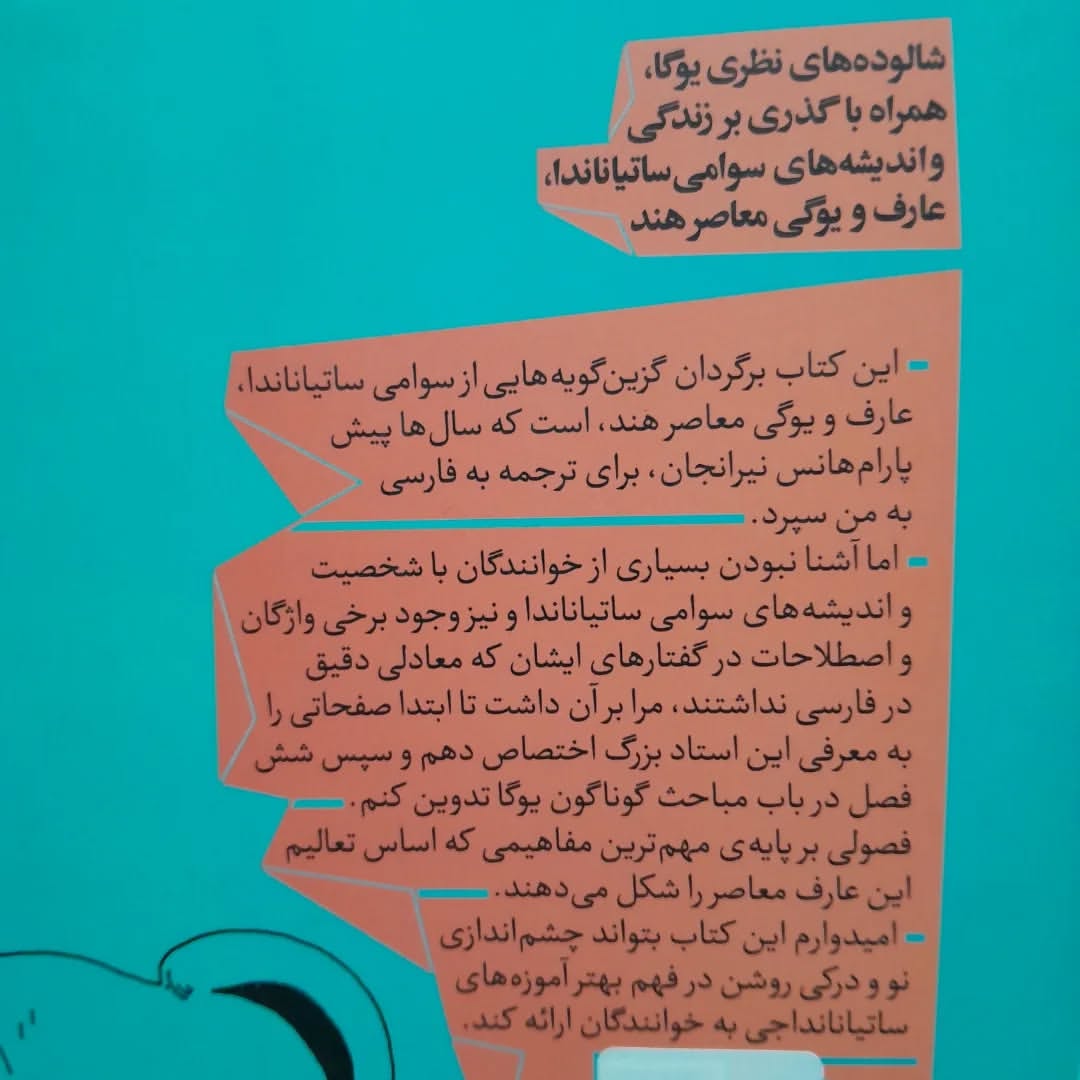 شالوده‌های نظری یوگا،
همراه با گذری بر زندگی
و اندیشه‌های سوامی ساتیاناندا،
عارف و یوگی معاصر هند
این کتاب برگردان گزین‌گویه‌هایی از سوامی ساتیاناندا،
عارف و یوگی معاصر هند، است که سال‌ها پیش
پارام‌هانس نیرانجان، برای ترجمه به فارسی
به من سپرد.
اما آشنا نبودن بسیاری از خوانندگان با شخصیت
و اندیشه‌های سوامی ساتیاناندا و نیز وجود برخی واژگان
و اصطلاحات در گفتارهای ایشان که معادلی دقیق
در فارسی نداشتند، مرا بر آن داشت تا ابتدا صفحاتی را
به معرفی این استاد بزرگ اختصاص دهم و سپس شش
فصل در باب مباحث گوناگون یوگا تدوین کنم.
فصولی بر پایه‌ی مهم‌ترین مفاهیمی که اساس تعالیم
این عارف معاصر را شکل می‌دهند.
امیدوارم این کتاب بتواند چشم‌اندازی
نو و درکی روشن در فهم بهتر آموزه‌های
ساتیاناندا‌جی به خوانندگان ارائه کند.